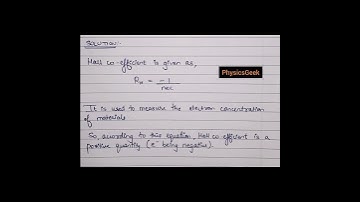 SOLUTION:-
PhysicsGeek
Hall co-efficient is given as,
R_H = -1 / nec
It is used to measure the electron concentration
of materials
So, according to this equation, Hall co efficient is a
positive quantity (e⁻ being negative).